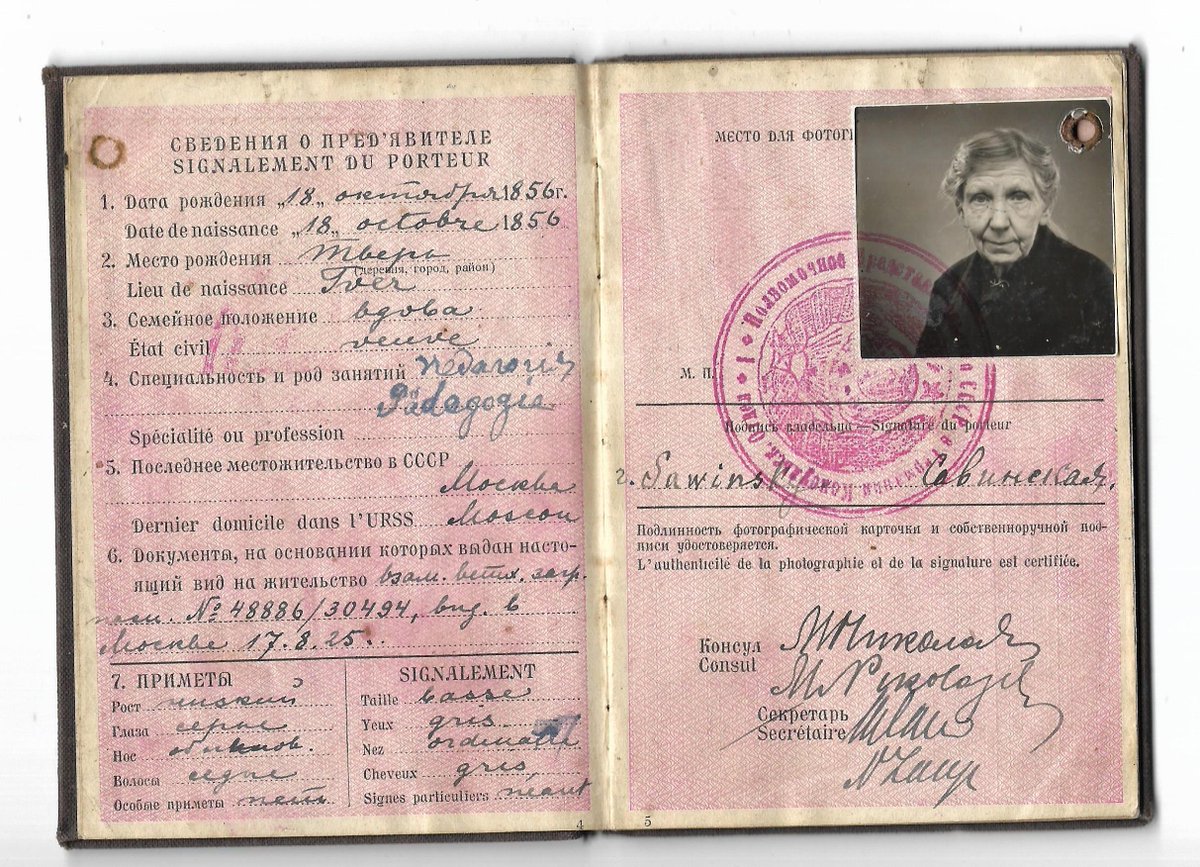 СВЕДЕНИЯ О ПРЕД'ЯВИТЕЛЕ
SIGNALEMENT DU PORTEUR
1. Дата рождения „18„ октября 1856г.
Date de naissance „18„ octobre 1856
2. Место рождения Тверь
(деревня, город, район)
Lieu de naissance Tver
3. Семейное положение вдова
État civil veuve
4. Специальность и род занятий педагогия
Pädegogie
Spécialité ou profession
5. Последнее местожительство в СССР
Москве
Dernier domicile dans l'URSS Moscou
6. Документы, на основании которых выдан насто-
ящий вид на жительство взам. ветх. загр.
№ 48886/30494, выд. в
Москве 17.8.25.
7. ПРИМЕТЫ
Рост низкий
Глаза серые
Нос обыкнов.
Волосы седые
Особые приметы нет
SIGNALEMENT
Taille basse
Yeux gris
Nez ordinaire
Cheveux gris
Signes particuliers néant
4
МЕСТО ДЛЯ ФОТОГ
М. П.
Подпись владельца — Signature du porteur
Савинская.
Подлинность фотографической карточки и собственноручной под-
писи удостоверяется.
L'authenticité de la photographie et de la signature est certifiée.
Консул
Consul
Секретарь
Secrétaire
5